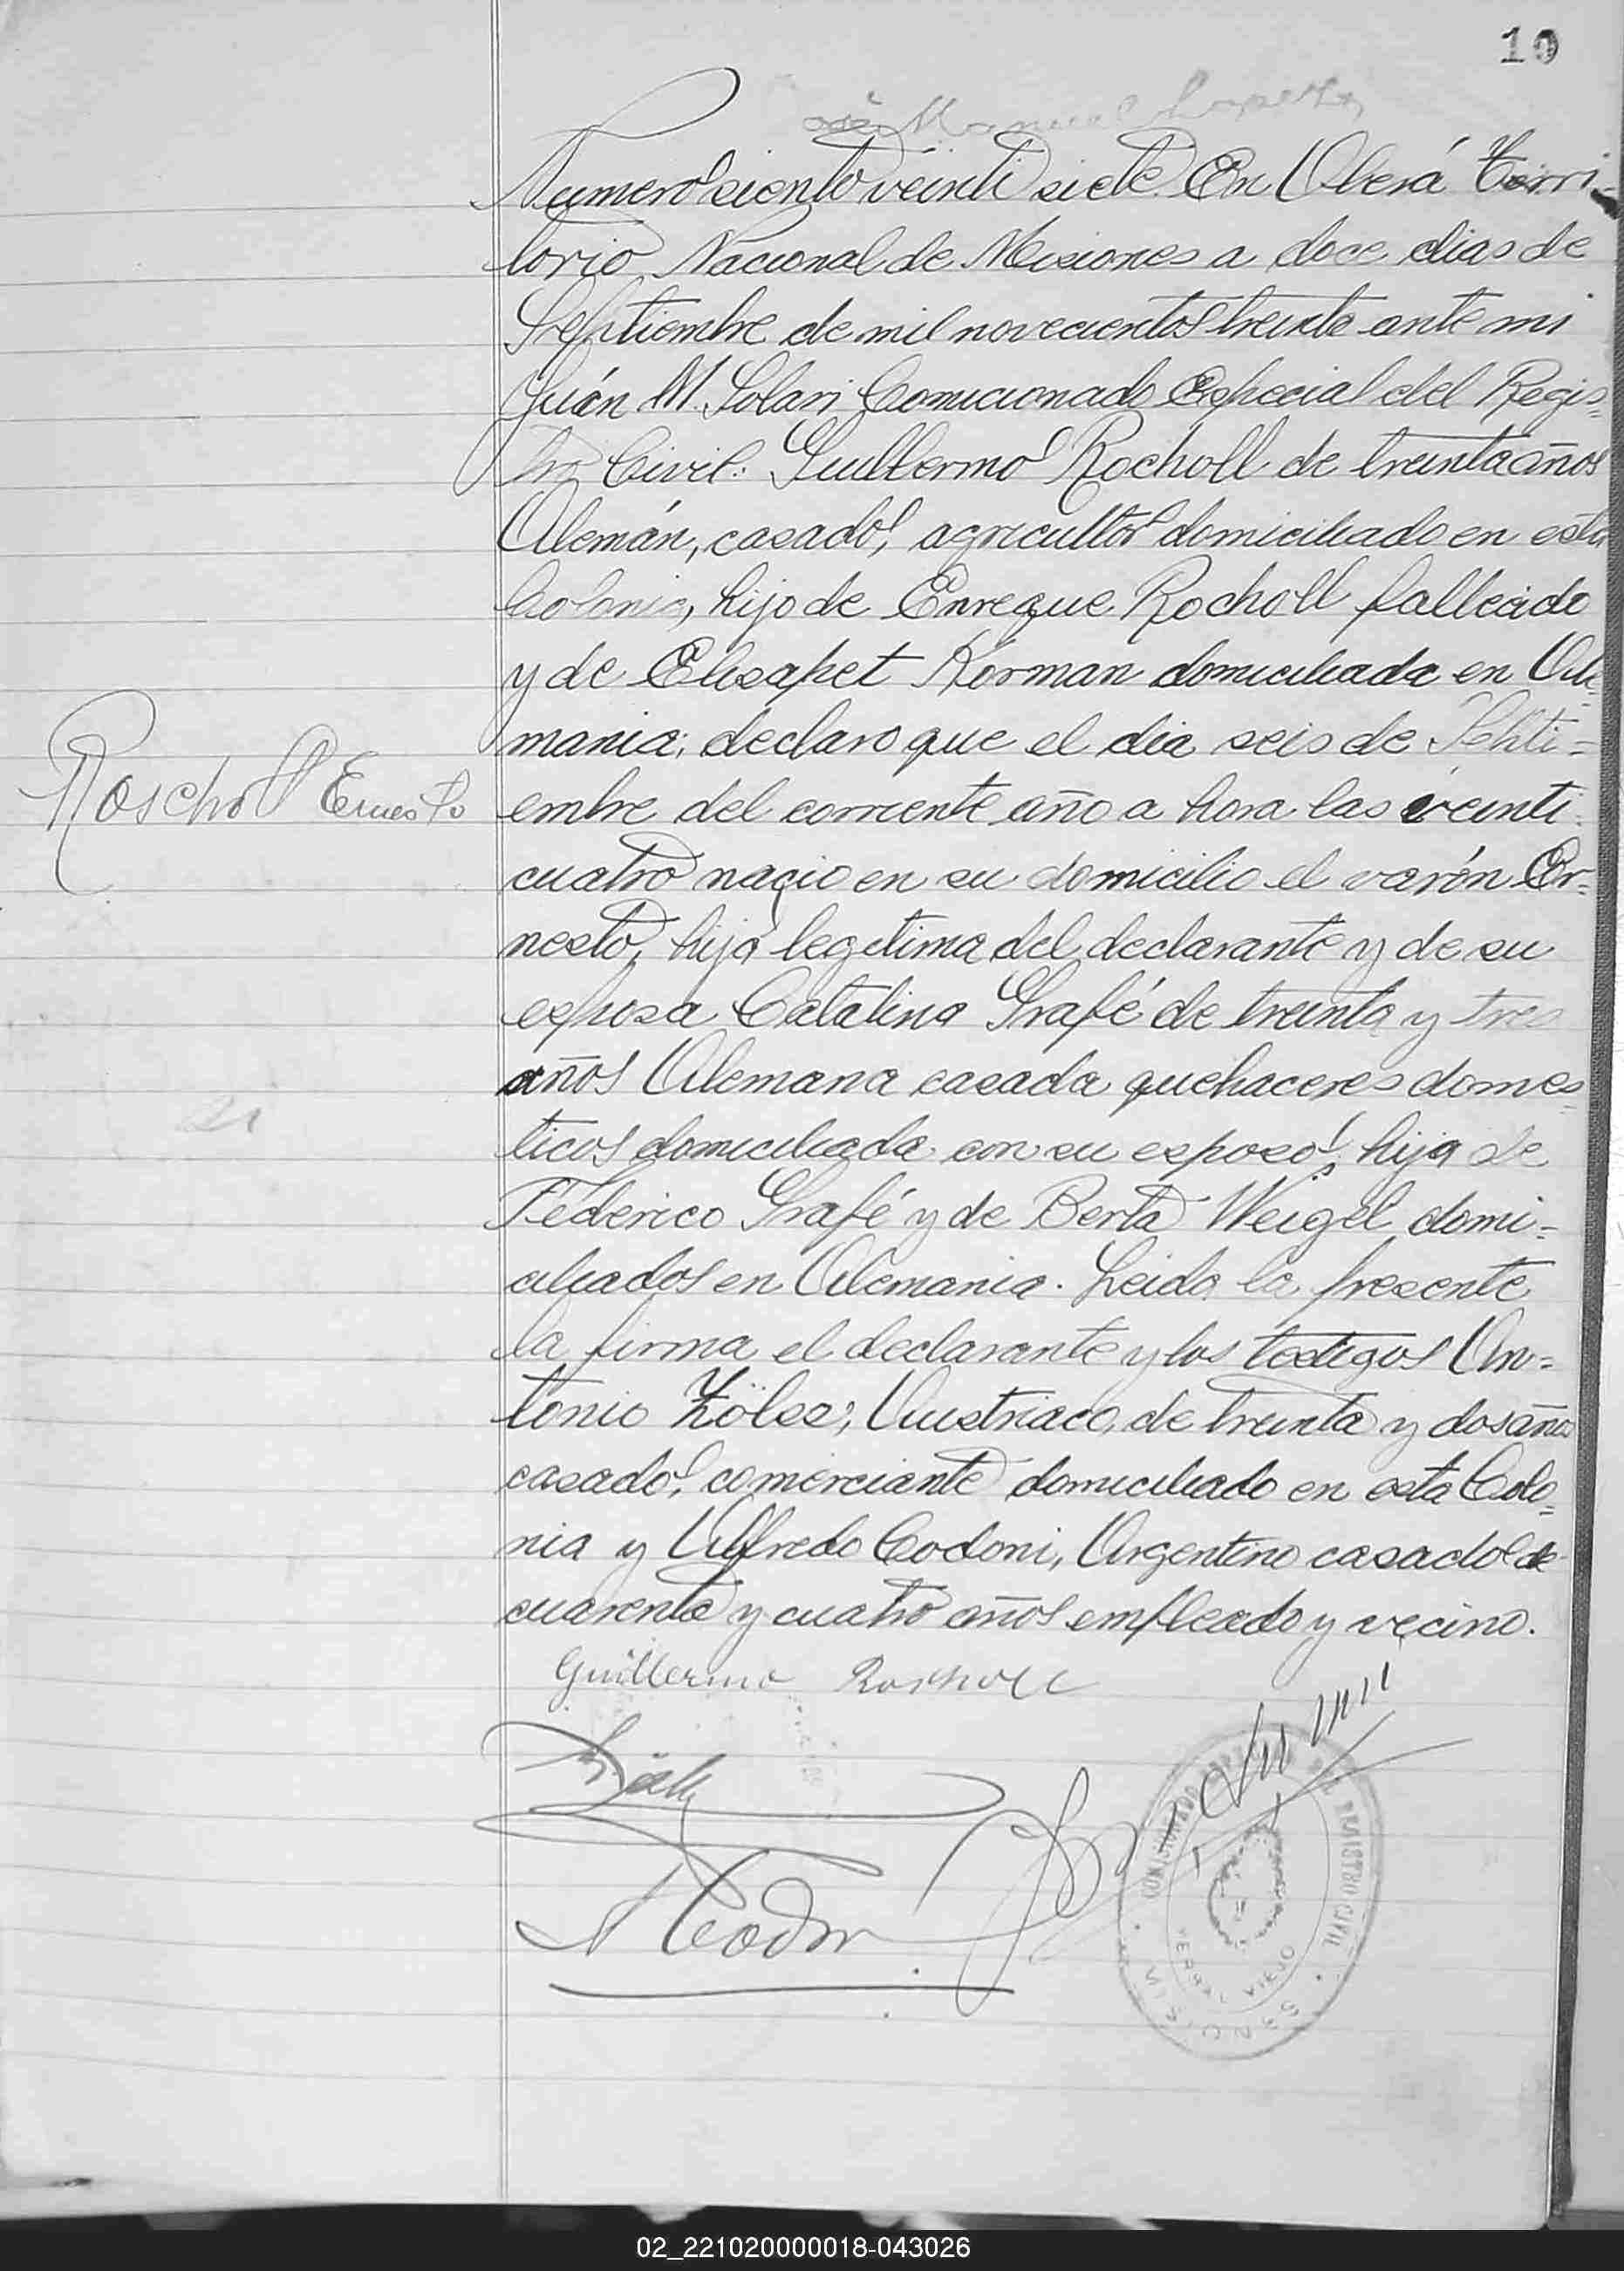 10
Manuel
Numero siento veinti siete. En Oberá Terri-
torio Nacional de Misiones a doce dias de
Septiembre de mil novecientos treinta ante mi
Juán M. Solari Comicionado Especial del Regis=
tro Civil: Guillermo Rocholl de treinta años
Alemán, casado, agricultor domiciliado en esta
Colonia, hijo de Enreque Rocholl fallecido
y de Elisapet Korman domiciliada en Ale=
mania; declaro que el dia seis de Sehti=
embre del corriente año a hora las veinti=
Roscholl Ernesto
cuatro nacio en su domicilio el varón Er=
nesto, hija legitima del declarante y de su
esposa Catalina Grafé de treinta y tres
años Alemana casada quehaceres domes=
ticos domiciliada con su esposo, hija de
Féderico Grafé y de Berta Weigel domi=
ciliados en Alemania. Leida la presente
la firma el declarante y los testigos An=
tonio Zölsz; Austriaco, de treinta y dos años
casado, comerciante domiciliado en esta Colo=
nia y Alfredo Codoni, Argentino casado de
cuarenta y cuatro años empleado y vecino.
Guillermo Rocholl
COMISIONADO ESPECIAL DEL REGISTRO CIVIL
YERBAL VIEJO
MISIONES
02_221020000018-043026